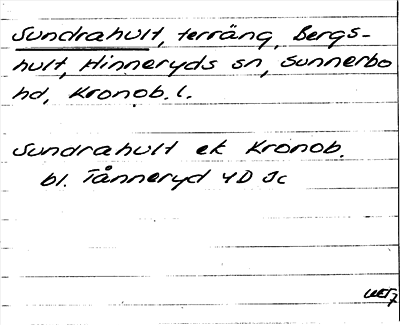 Sundrahult, terräng, Bergs-
hult, Hinneryds sn, Sunnerbo
hd, Kronob. l.
Sundrahult ek Kronob.
bl. Tånneryd 4D Jc